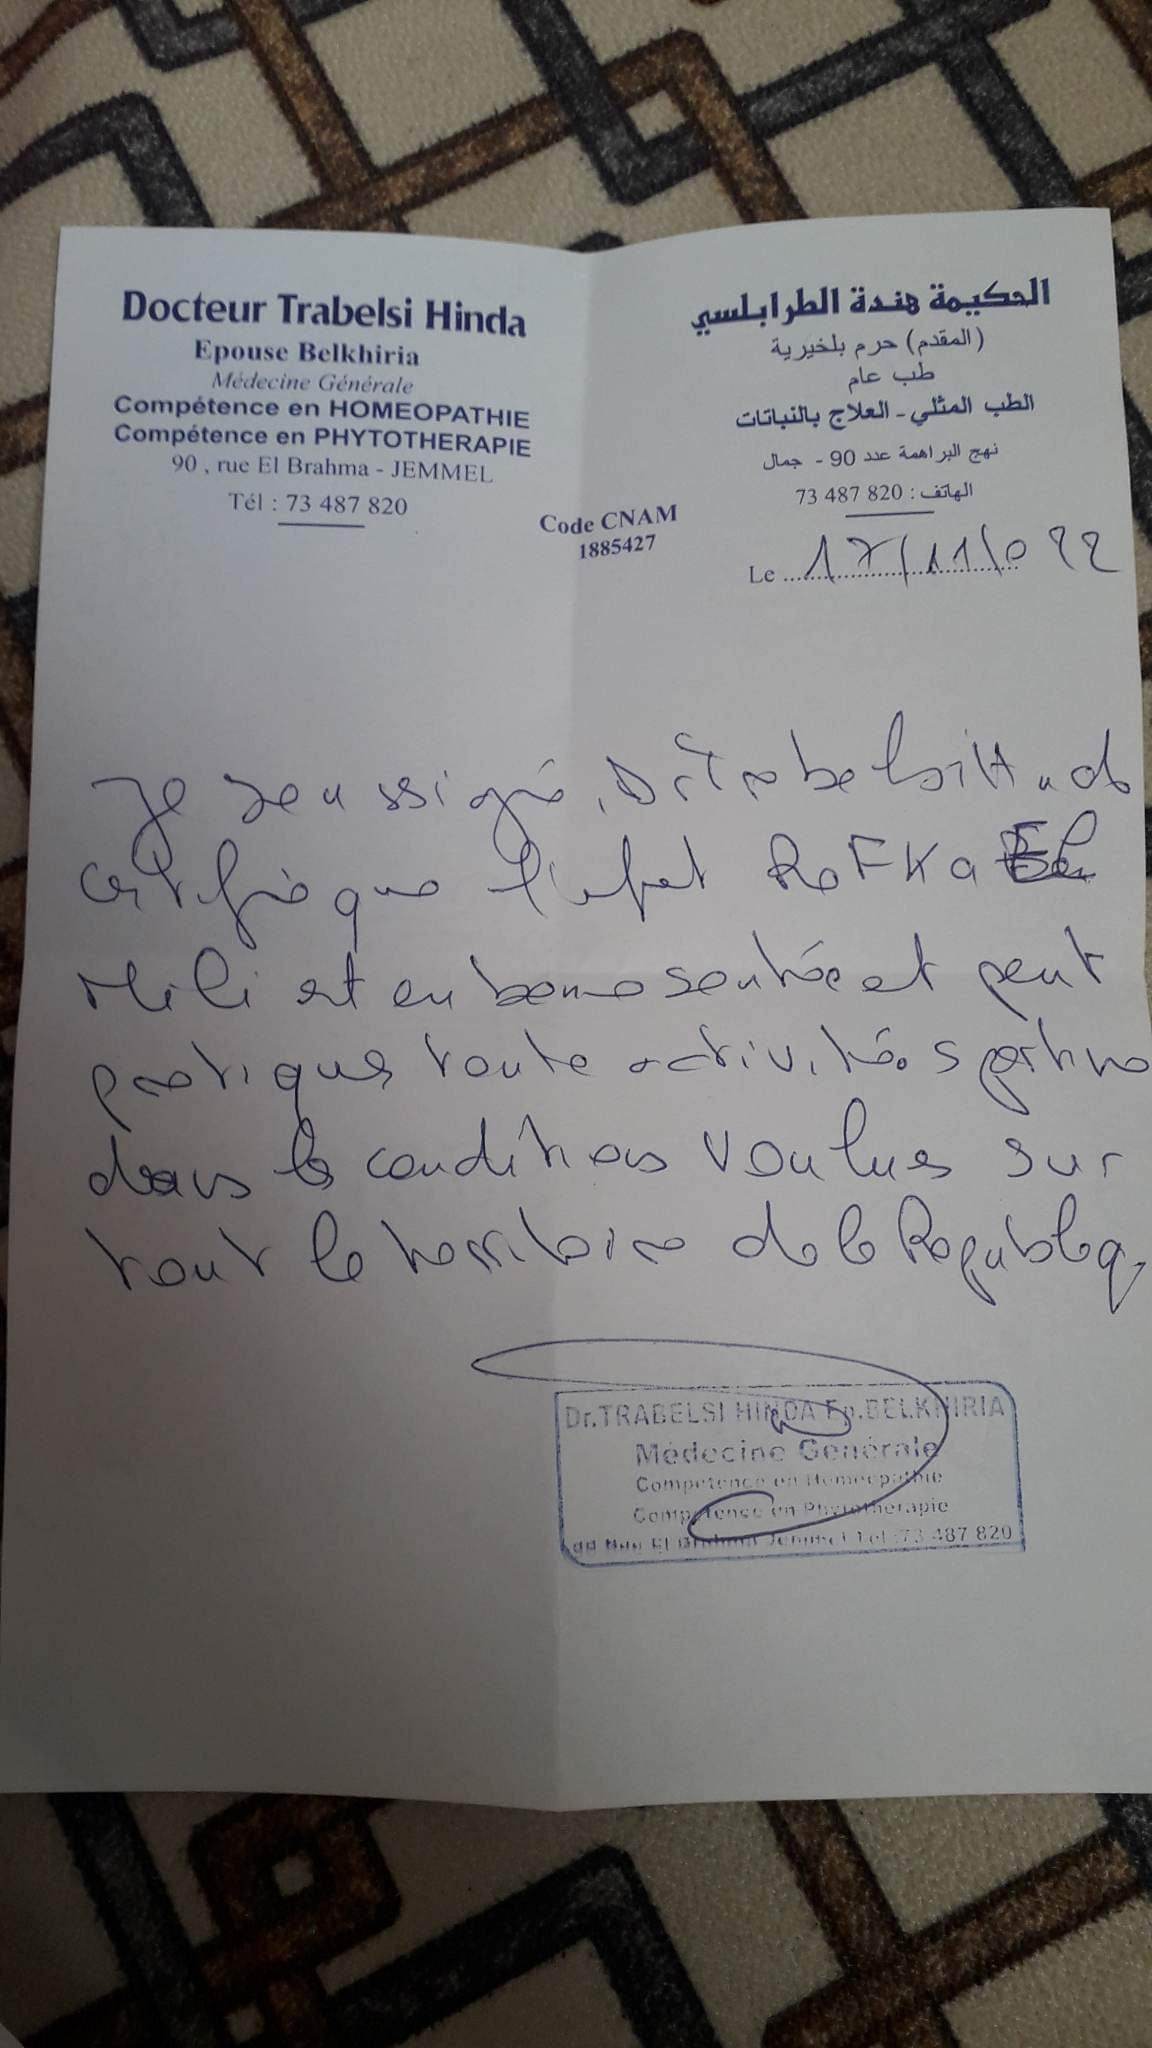 Docteur Trabelsi Hinda
Epouse Belkhiria
Médecine Générale
Compétence en HOMEOPATHIE
Compétence en PHYTOTHERAPIE
90 , rue El Brahma - JEMMEL
Tél : 73 487 820
الحكيمة هندة الطرابلسي
(المقدم) حرم بلخيرية
طب عام
الطب المثلي - العلاج بالنباتات
نهج البراهمة عدد 90 - جمال
الهاتف : 820 487 73
Code CNAM
1885427
Le 17/11/022
Je soussigné, Dr Trabelsi Hinda
certifie que l'enfant RoFKa El
Mili est en bonne santée et peut
pratiquer toute activitée sportive
dans les conditions voulues sur
tout le territoire de la Républiq
Dr.TRABELSI HINDA Ep.BELKHIRIA
Médecine Générale
Compétence en Homéopathie
Compétence en Phytothérapie
90 Rue El Brahma Jemmel Tel :73 487 820